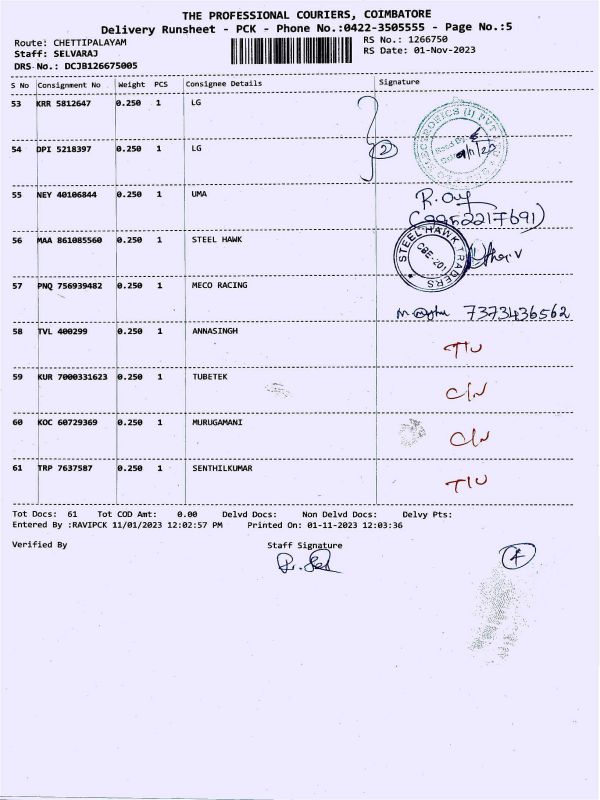 THE PROFESSIONAL COURIERS, COIMBATORE
Delivery Runsheet - PCK - Phone No.:0422-3505555 - Page No.:5
Route: CHETTIPALAYAM RS No.: 1266750
Staff: SELVARAJ RS Date: 01-Nov-2023
DRS No.: DCJB126675005
S No Consignment No Weight PCS Consignee Details Signature
53 KRR 5812647 0.250 1 LG
54 DPI 5218397 0.250 1 LG 2
55 NEY 40106844 0.250 1 UMA
(9952217691)
56 MAA 861085560 0.250 1 STEEL HAWK STEEL HAWK TRADERS
57 PNQ 756939482 0.250 1 MECO RACING
7373436562
58 TVL 400299 0.250 1 ANNASINGH
59 KUR 7000331623 0.250 1 TUBETEK
60 KOC 60729369 0.250 1 MURUGAMANI
61 TRP 7637587 0.250 1 SENTHILKUMAR
Tot Docs: 61 Tot COD Amt: 0.00 Delvd Docs: Non Delvd Docs: Delvy Pts:
Entered By :RAVIPCK 11/01/2023 12:02:57 PM Printed On: 01-11-2023 12:03:36
Verified By Staff Signature
4